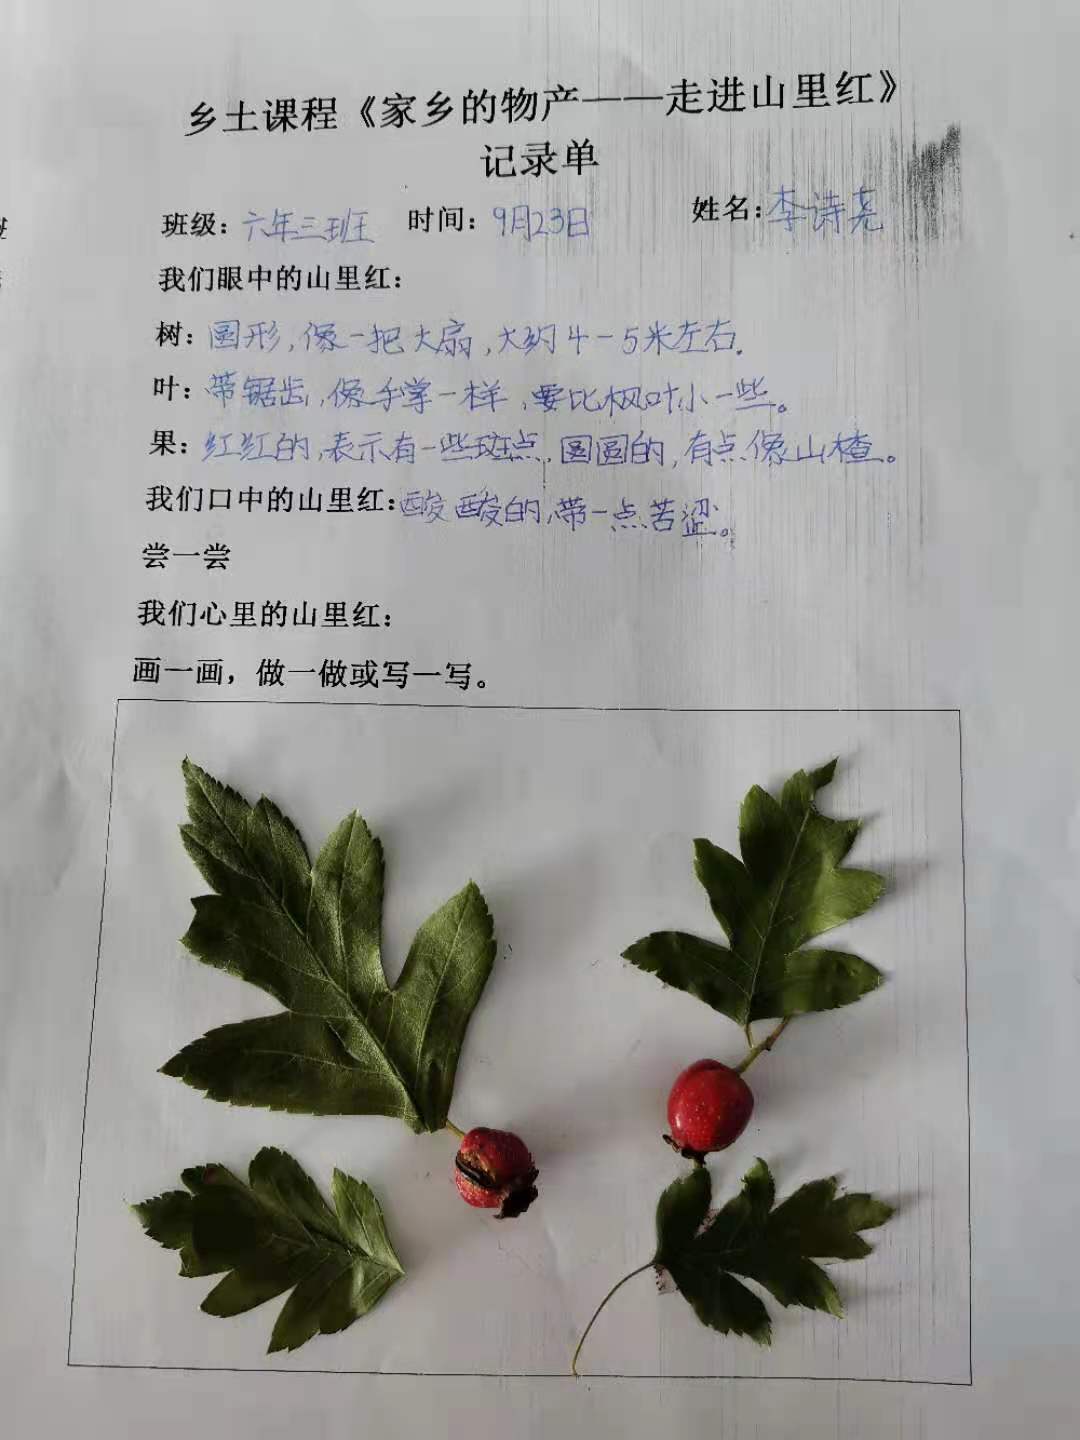 乡土课程《家乡的物产——走进山里红》
记录单
班级：六年三班 时间：9月23日 姓名：李诗尧
我们眼中的山里红：
树：圆形，像一把大扇，大约4-5米左右.
叶：带锯齿，像手掌一样，要比枫叶小一些。
果：红红的，表示有一些斑点，圆圆的，有点像山楂。
我们口中的山里红：酸酸的，带一点苦涩。
尝一尝
我们心里的山里红：
画一画，做一做或写一写。